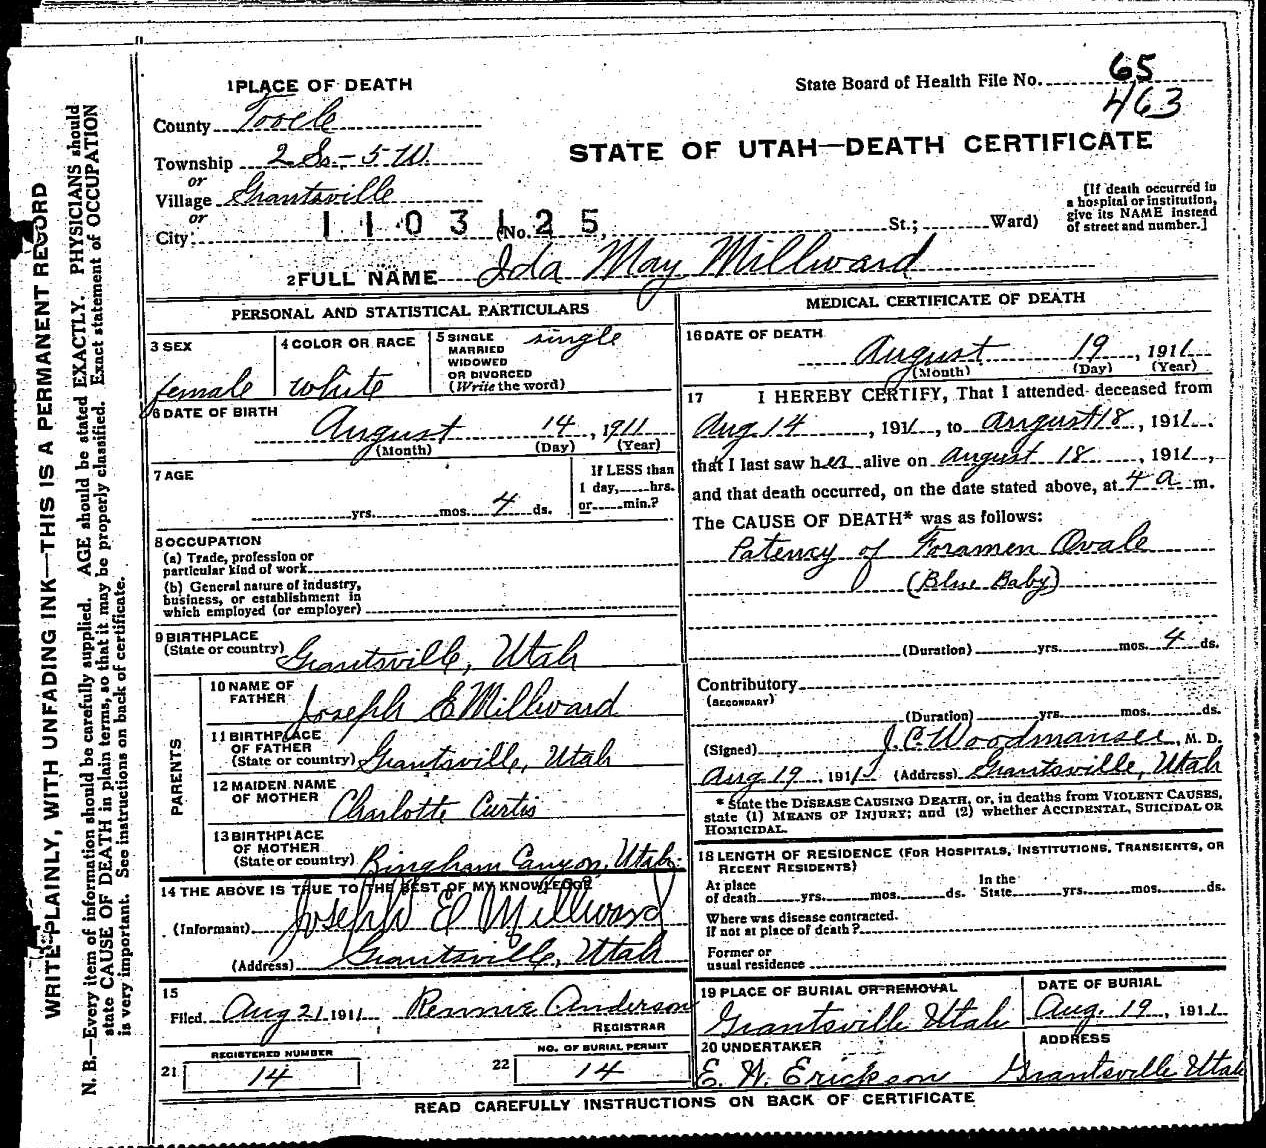 WRITE PLAINLY, WITH UNFADING INK—THIS IS A PERMANENT RECORD
N. B.—Every item of information should be carefully supplied. AGE should be stated EXACTLY. PHYSICIANS should
state CAUSE OF DEATH in plain terms, so that it may be properly classified. Exact statement of OCCUPATION
is very important. See instructions on back of certificate.
1 PLACE OF DEATH
State Board of Health File No. 65
463
County Tooele
STATE OF UTAH—DEATH CERTIFICATE
Township 2 So.-5 W.
or
Village Grantsville
or
[If death occurred in
a hospital or institution,
give its NAME instead
of street and number.]
1103125
City (No. St.; Ward)
2 FULL NAME Ida May Millward
PERSONAL AND STATISTICAL PARTICULARS
3 SEX
female
4 COLOR OR RACE
white
5 SINGLE
MARRIED
WIDOWED
OR DIVORCED
(Write the word)
single
6 DATE OF BIRTH
August 14, 1911
(Month) (Day) (Year)
7 AGE
yrs. mos. 4 ds.
If LESS than
1 day, hrs.
or min.?
8 OCCUPATION
(a) Trade, profession or
particular kind of work
(b) General nature of industry,
business, or establishment in
which employed (or employer)
9 BIRTHPLACE
(State or country) Grantsville, Utah
PARENTS
10 NAME OF
FATHER Joseph E Millward
11 BIRTHPLACE
OF FATHER
(State or country) Grantsville, Utah
12 MAIDEN NAME
OF MOTHER Charlotte Curtis
13 BIRTHPLACE
OF MOTHER
(State or country) Bingham Canyon, Utah.
14 THE ABOVE IS TRUE TO THE BEST OF MY KNOWLEDGE
(Informant) Joseph E Millward
(Address) Grantsville, Utah
15
Filed Aug 21 1911, Rennie Anderson
REGISTRAR
21 REGISTERED NUMBER
14
22 NO. OF BURIAL PERMIT
14
MEDICAL CERTIFICATE OF DEATH
16 DATE OF DEATH
August 19, 1911
(Month) (Day) (Year)
17 I HEREBY CERTIFY, That I attended deceased from
Aug 14, 1911, to August 18, 1911.
that I last saw her alive on August 18, 1911,
and that death occurred, on the date stated above, at 4 a m.
The CAUSE OF DEATH* was as follows:
Patency of Foramen Ovale
(Blue Baby)
(Duration) yrs. mos. 4 ds.
Contributory
(SECONDARY)
(Duration) yrs. mos. ds.
(Signed) J. C. Woodmansee, M. D.
Aug 19, 1911 (Address) Grantsville, Utah
* State the DISEASE CAUSING DEATH, or, in deaths from VIOLENT CAUSES,
state (1) MEANS OF INJURY; and (2) whether ACCIDENTAL, SUICIDAL OR
HOMICIDAL.
18 LENGTH OF RESIDENCE (FOR HOSPITALS, INSTITUTIONS, TRANSIENTS, OR
RECENT RESIDENTS)
At place
of death yrs. mos. ds.
In the
State yrs. mos. ds.
Where was disease contracted.
if not at place of death?
Former or
usual residence
19 PLACE OF BURIAL OR REMOVAL
Grantsville Utah
DATE OF BURIAL
Aug. 19, 1911
20 UNDERTAKER
E. W. Erickson
ADDRESS
Grantsville Utah
READ CAREFULLY INSTRUCTIONS ON BACK OF CERTIFICATE